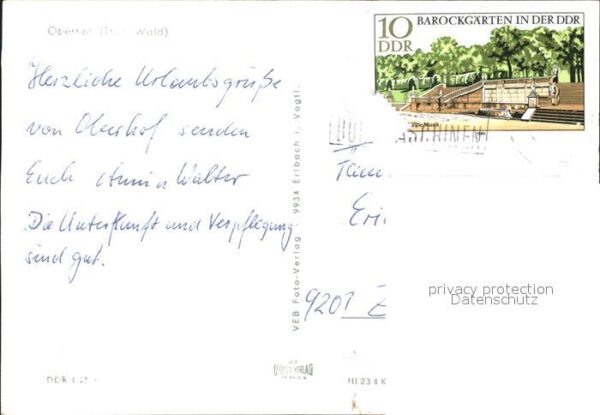 Oberhof (Thür. Wald)
Herzliche Urlaubsgrüße
von Oberhof senden
Euch Walter
Die Unterkunft und Verpflegung
sind gut.
VEB Foto-Verlag · 9934 Erlbach i. Vogtl.
10
DDR
BAROCKGÄRTEN IN DER DDR
Fam
Eri
9201
privacy protection
Datenschutz
VERLAG
DDR
III 23 4